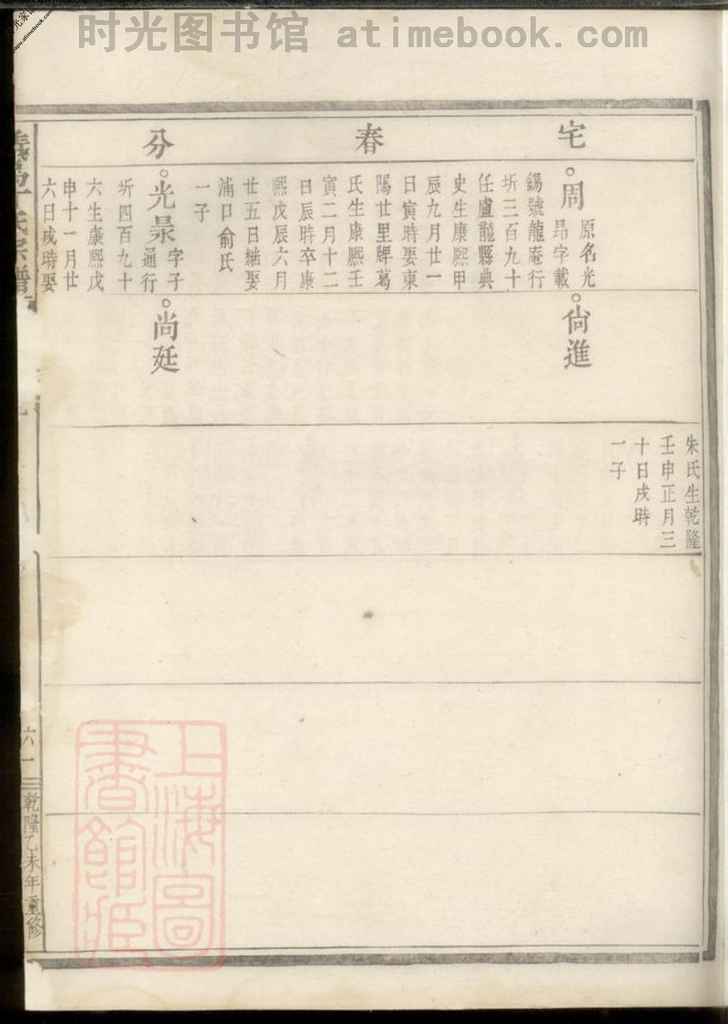 时光图书馆 atimebook.com
宅
春
分
周
原名光
昂字載
錫號龍庵行
圻三百九十
任盧龍縣典
史生康熙甲
辰九月廿一
日寅時娶東
陽廿里牌葛
氏生康熙壬
寅二月十二
日辰時卒康
熙戊辰六月
廿五日繼娶
浦口俞氏
一子
光景
字子
通行
圻四百九十
六生康熙戊
申十一月廿
六日戌時娶
尚進
尚廷
朱氏生乾隆
壬申正月三
十日戌時
一子
氏宗譜
六一
乾隆乙未年重修
上海圖
書館藏